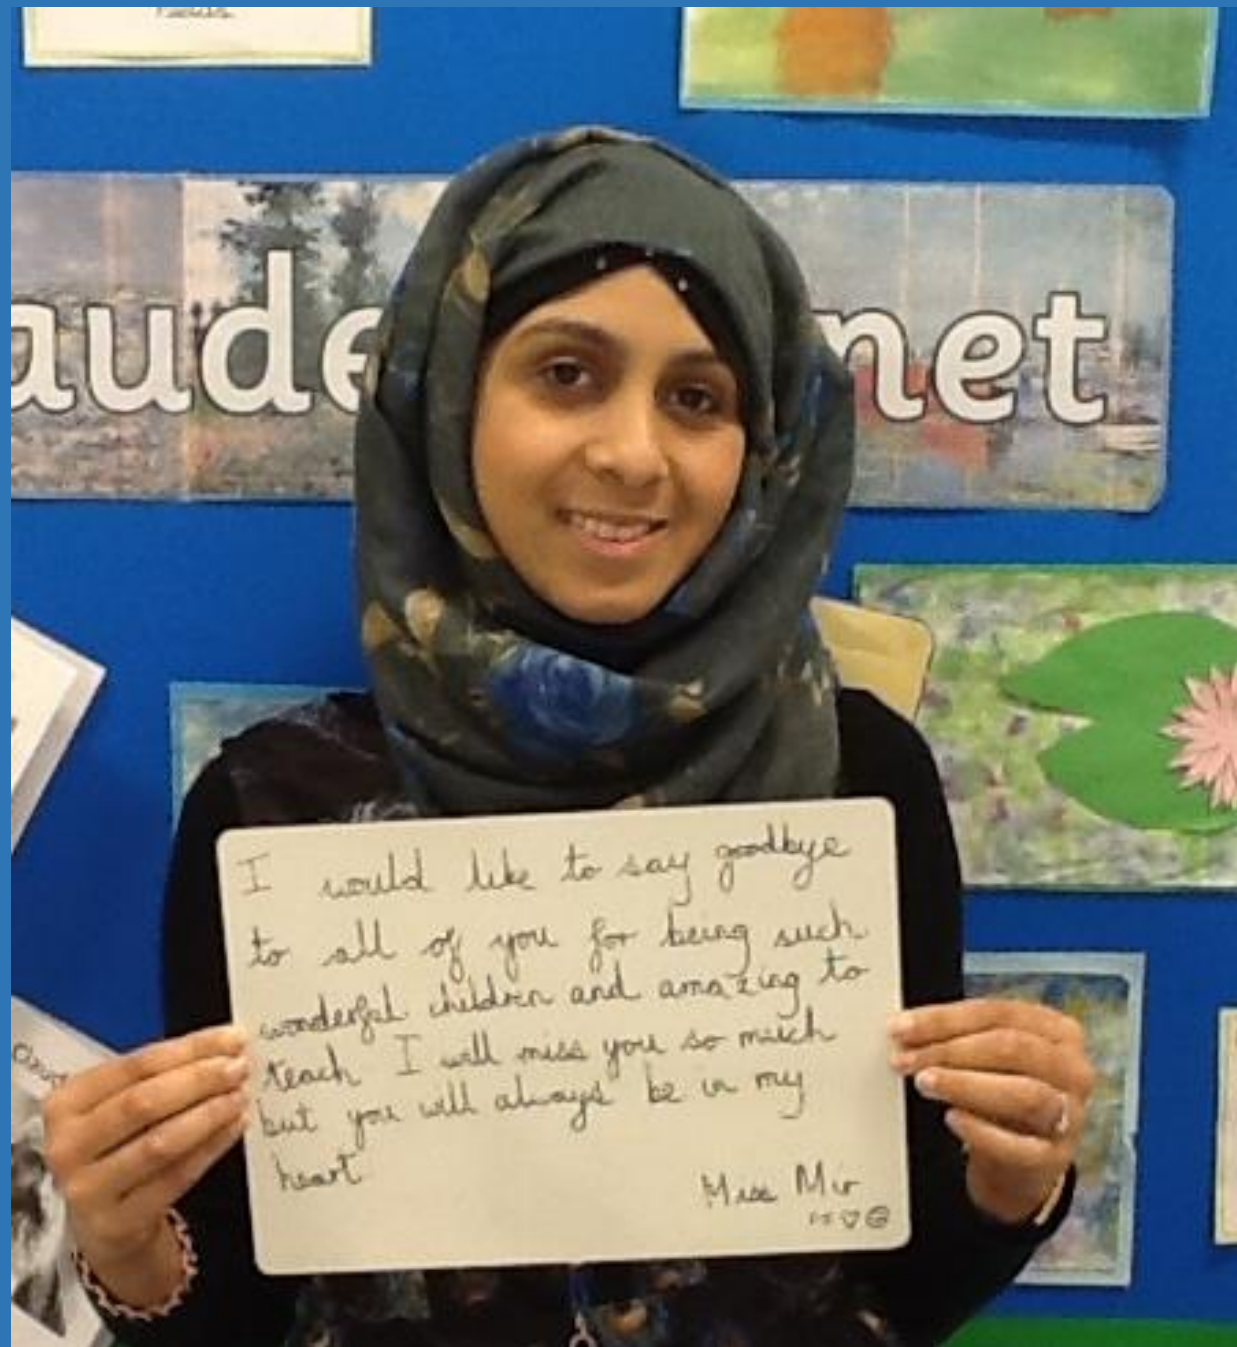 aude
net
I would like to say goodbye
to all of you for being such
wonderful children and amazing to
teach I will miss you so much
but you will always be in my
heart
Miss Mir